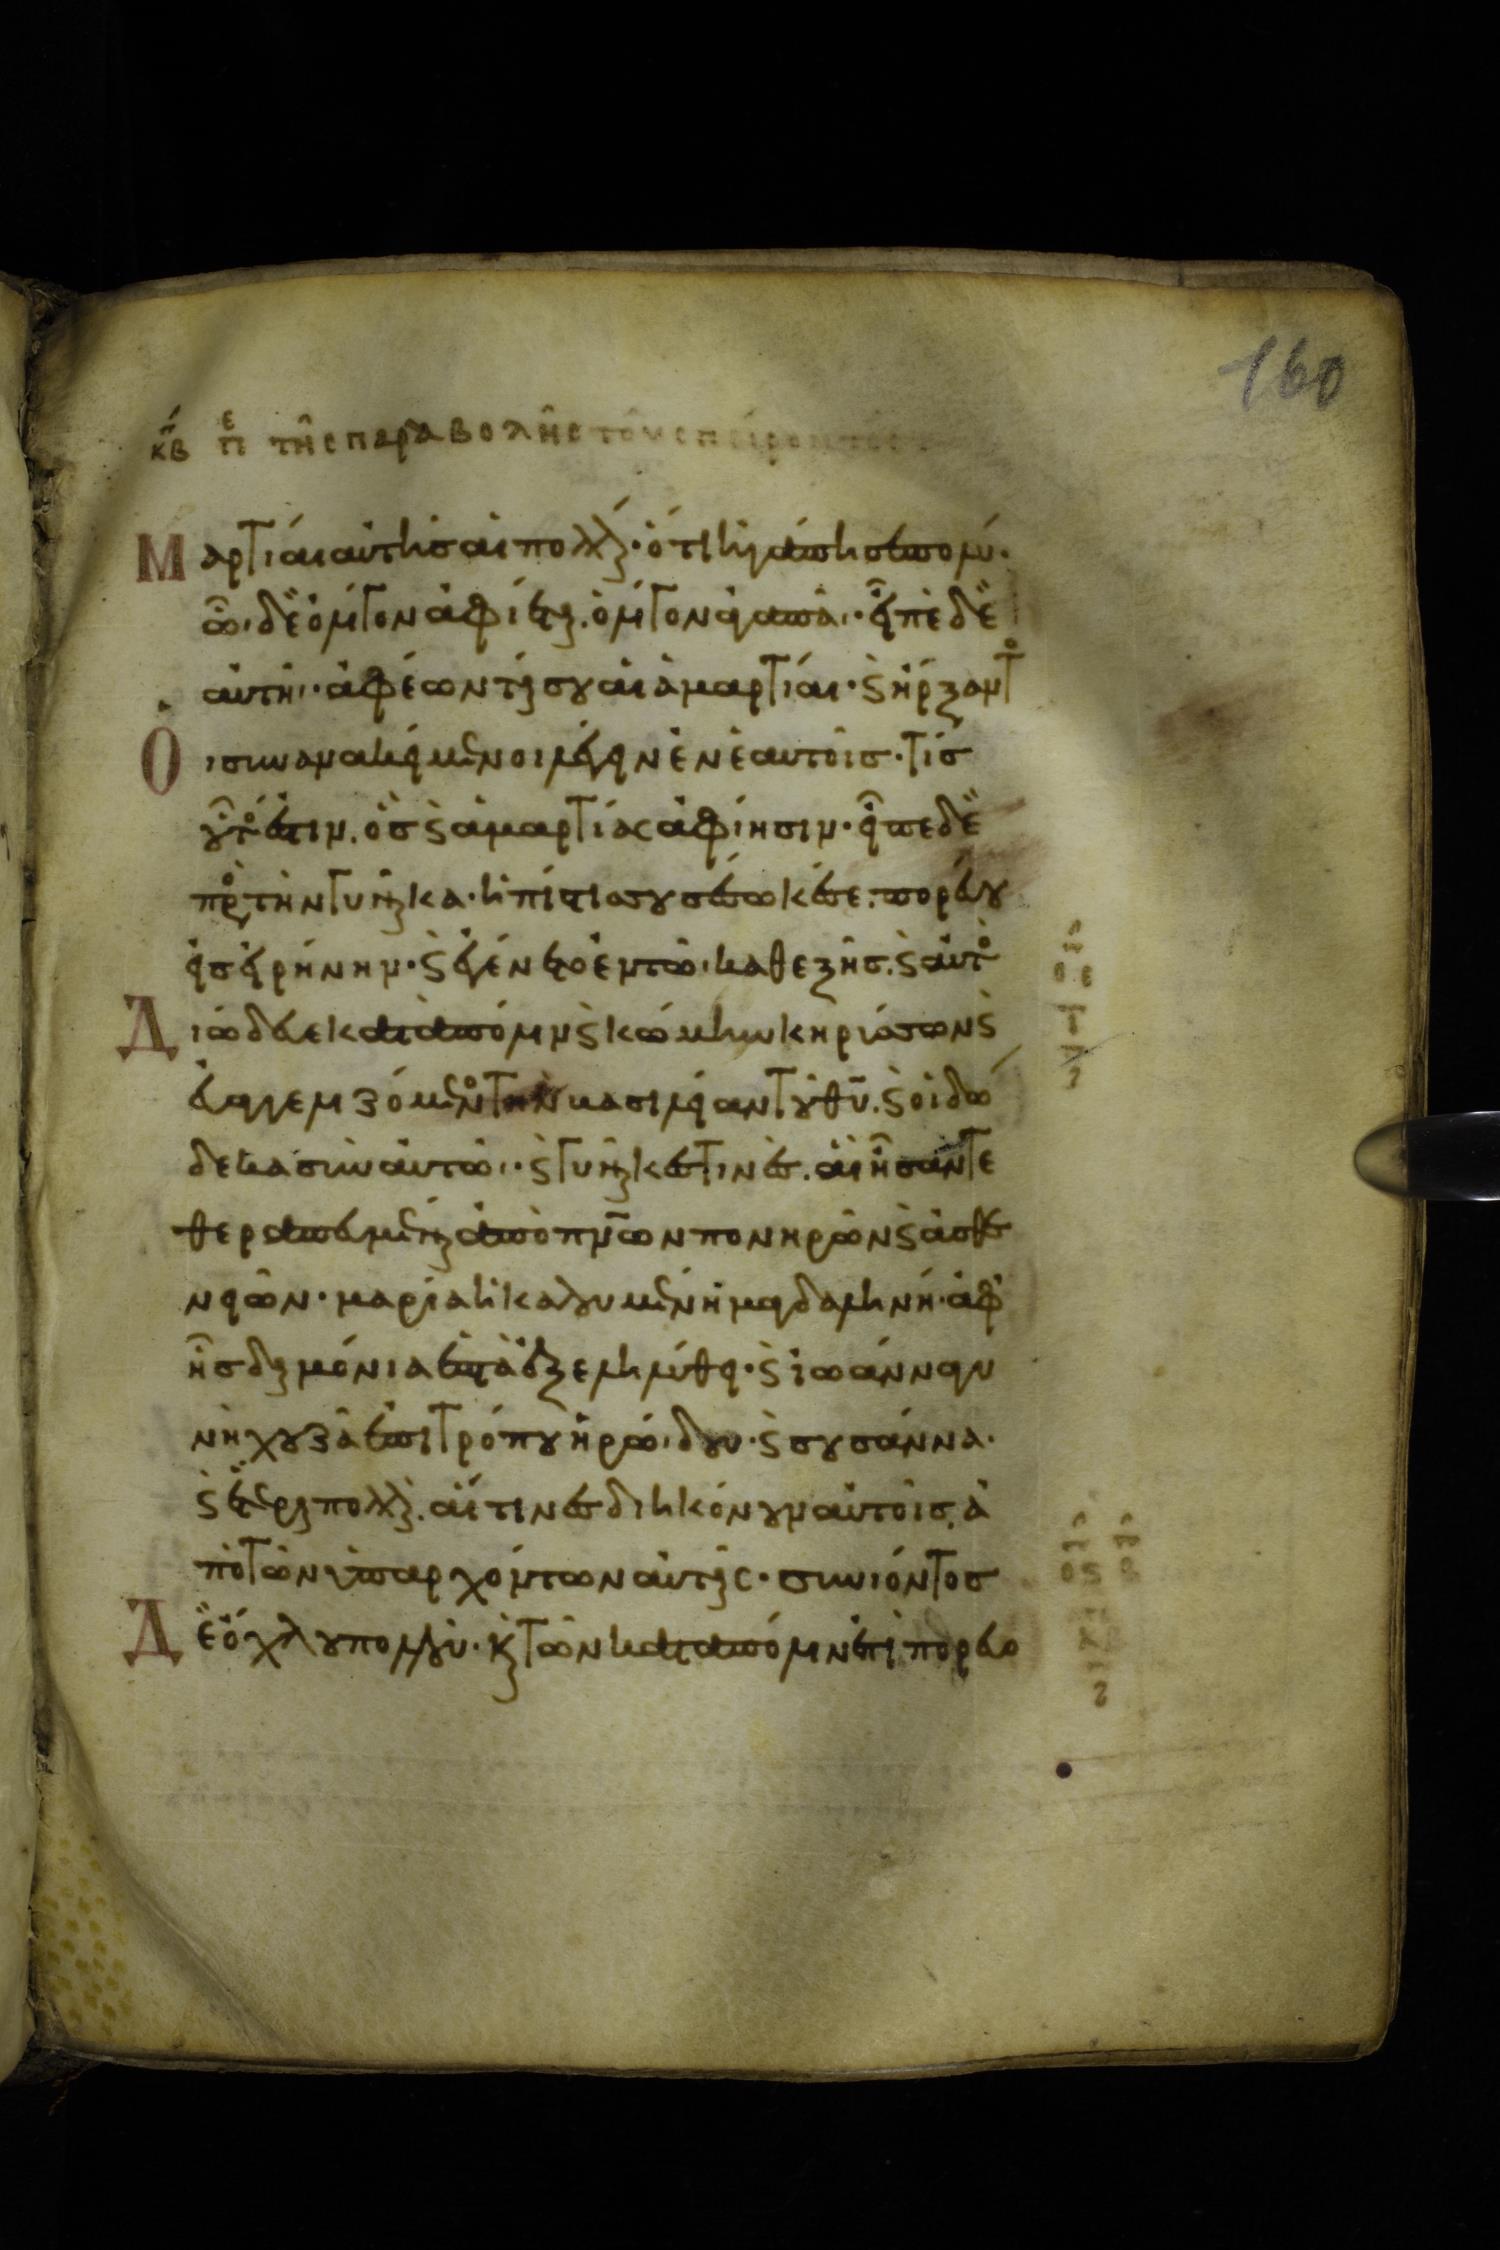 κβ πε τῆς παραβολῆς τοῦ σπείροντος
160
Μαρτίαι αὐτῆς αἱ πολλαί· ὅτι ἠγάπησε πολύ·
ᾧ δὲ ὀλίγον ἀφίεται. ὀλίγον ἀγαπᾷ· εἶπε δὲ
αὐτῇ· ἀφέωνταί σου αἱ ἁμαρτίαι· καὶ ἤρξαντο
Οἱ συνανακείμενοι λέγειν ἐν ἑαυτοῖς· τίς
οὗτός ἐστιν. ὃς καὶ ἁμαρτίας ἀφίησιν· εἶπε δὲ
πρὸς τὴν γυναῖκα· ἡ πίστις σου σέσωκέ σε. πορεύου
εἰς εἰρήνην· καὶ ἐγένετο ἐν τῷ καθεξῆς. καὶ αὐτὸς
Διώδευε κατὰ πόλιν καὶ κώμην κηρύσσων καὶ
εὐαγγελιζόμενος τὴν βασιλείαν τοῦ θ̅υ̅. καὶ οἱ δώ
δεκα σὺν αὐτῷ· καὶ γυναῖκές τινες. αἳ ἦσαν τε
θεραπευμέναι ἀπὸ π̅ν̅ων πονηρῶν καὶ ἀσθε
νειῶν· μαρία ἡ καλουμένη μαγδαληνή· ἀφ'
ἧς δαιμόνια ἑπτὰ ἐξεληλύθει· καὶ ἰωάννα γυ
νὴ χουζᾶ ἐπιτρόπου ἡρώδου· καὶ σουσάννα·
καὶ ἕτεραι πολλαί. αἵτινες διηκόνουν αὐτοῖς. ἀ
πὸ τῶν ὑπαρχόντων αὐταῖς· συνιόντος
Δὲ ὄχλου πολλοῦ· καὶ τῶν κατὰ πόλιν ἐπιπορευο